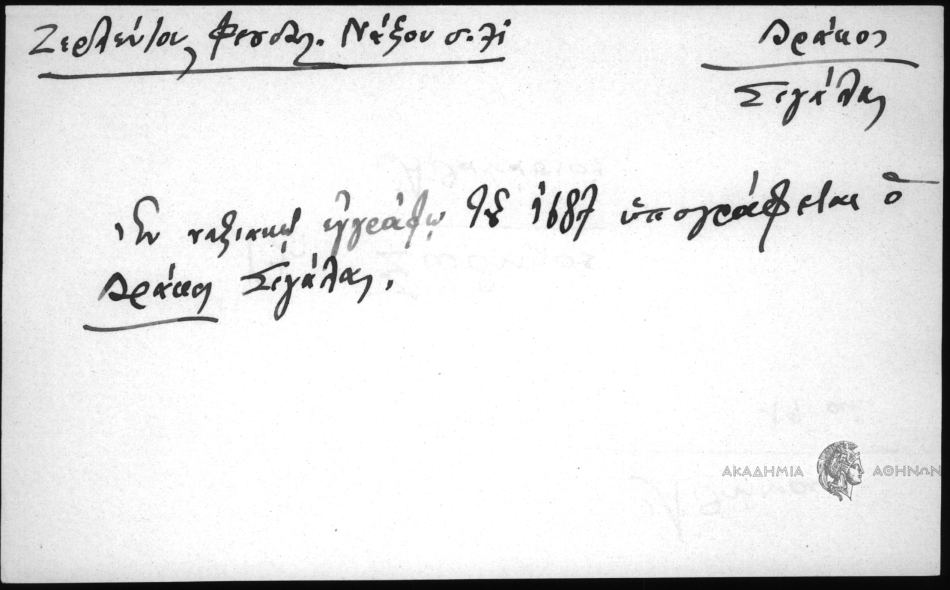 Ζερλέντου, Φεουδαλ. Νάξου σ. 71
Δράκος
Σιγάλας
Ἐν ναξιακῷ ἐγγράφῳ τοῦ 1687 ὑπογράφεται ὁ
Δράκος Σιγάλας.
ΑΚΑΔΗΜΙΑ ΑΘΗΝΩΝ